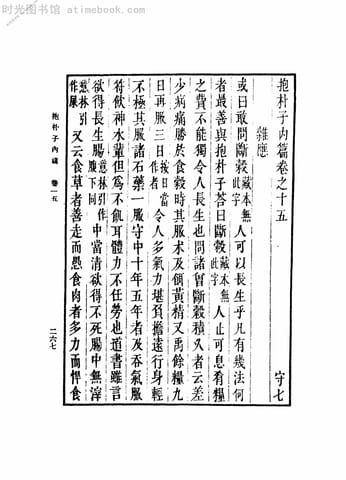 时光图书馆 - atimebook.com
抱朴子內篇卷之十五 守七
雜應
或曰敢問斷穀藏本無此字人可以長生乎凡有幾法何
者最善抱朴子荅曰斷穀藏本無此字人止可息肴糧
之費不能獨令人長生也問諸曾斷穀積久者云差
少病痛勝於食穀時其服术及餌黃精又禹餘糧丸
日再服三日按日當作者令人多氣力堪負擔遠行身輕
不極其服諸石藥一服守中十年五年者及吞氣服
符飲神水輩但為不飢耳體力不任勞也道書雖言
欲得長生腸意林引作腹下同中當清欲得不死腸中無滓
意林引作屎又云食草者善走而愚食肉者多力而悍食
抱朴子內篇 卷一五
二六七